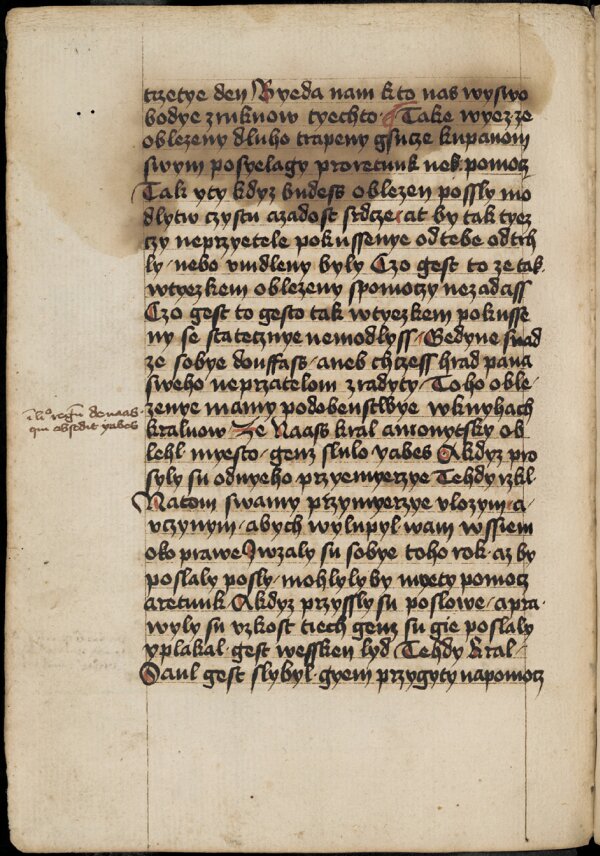 trzetye den Byeda nam kto nas wyswo
bodye zrukuow tyechto Take wyezze
oblezeny dluho trapeny gsucze kupanom
swym posyelagy proretunk neb pomocz
Tak yty kdyz budess oblezen possly mo
dlytw czystu azadost srdcze at by tak tyez
czy neprzyetele pokussenye odtebe odtrh
ly nebo vmdleny byly Czo gest to ze tak
wtyezkem oblezeny spomoczy nezadass
Czo gest to gesto tak wtyezkem pokusse
ny se statecznye nemodlyss Gedyne snad
ze sobye douffass aneb chczess hrad pana
sweho neprzatelom zradyty Toho oble
zenye mamy podobenstwye wknyhach
in li⁰ regū de naas
qui obsedit yabes
kraluow Ze Naass kral amonytsky ob
lehl myesto genz slulo yabes Akdyz pro
syly su odnyeho przyemyerzye Tehdy rzkl
Natom swamy przymyerzye vlozym a
vczynym abych wylupyl wam wssiem
oko prawe Iwzaly su sobye toho rok az by
poslaly posly mohlyly by myety pomocz
aretunk Akdyz przyssly su poslowe apra
wyly su vzkost tiech genz su gie poslaly
yplakal gest wessken lyd Tehdy kral
Saul gest slybyl gyem przygyty napomocz